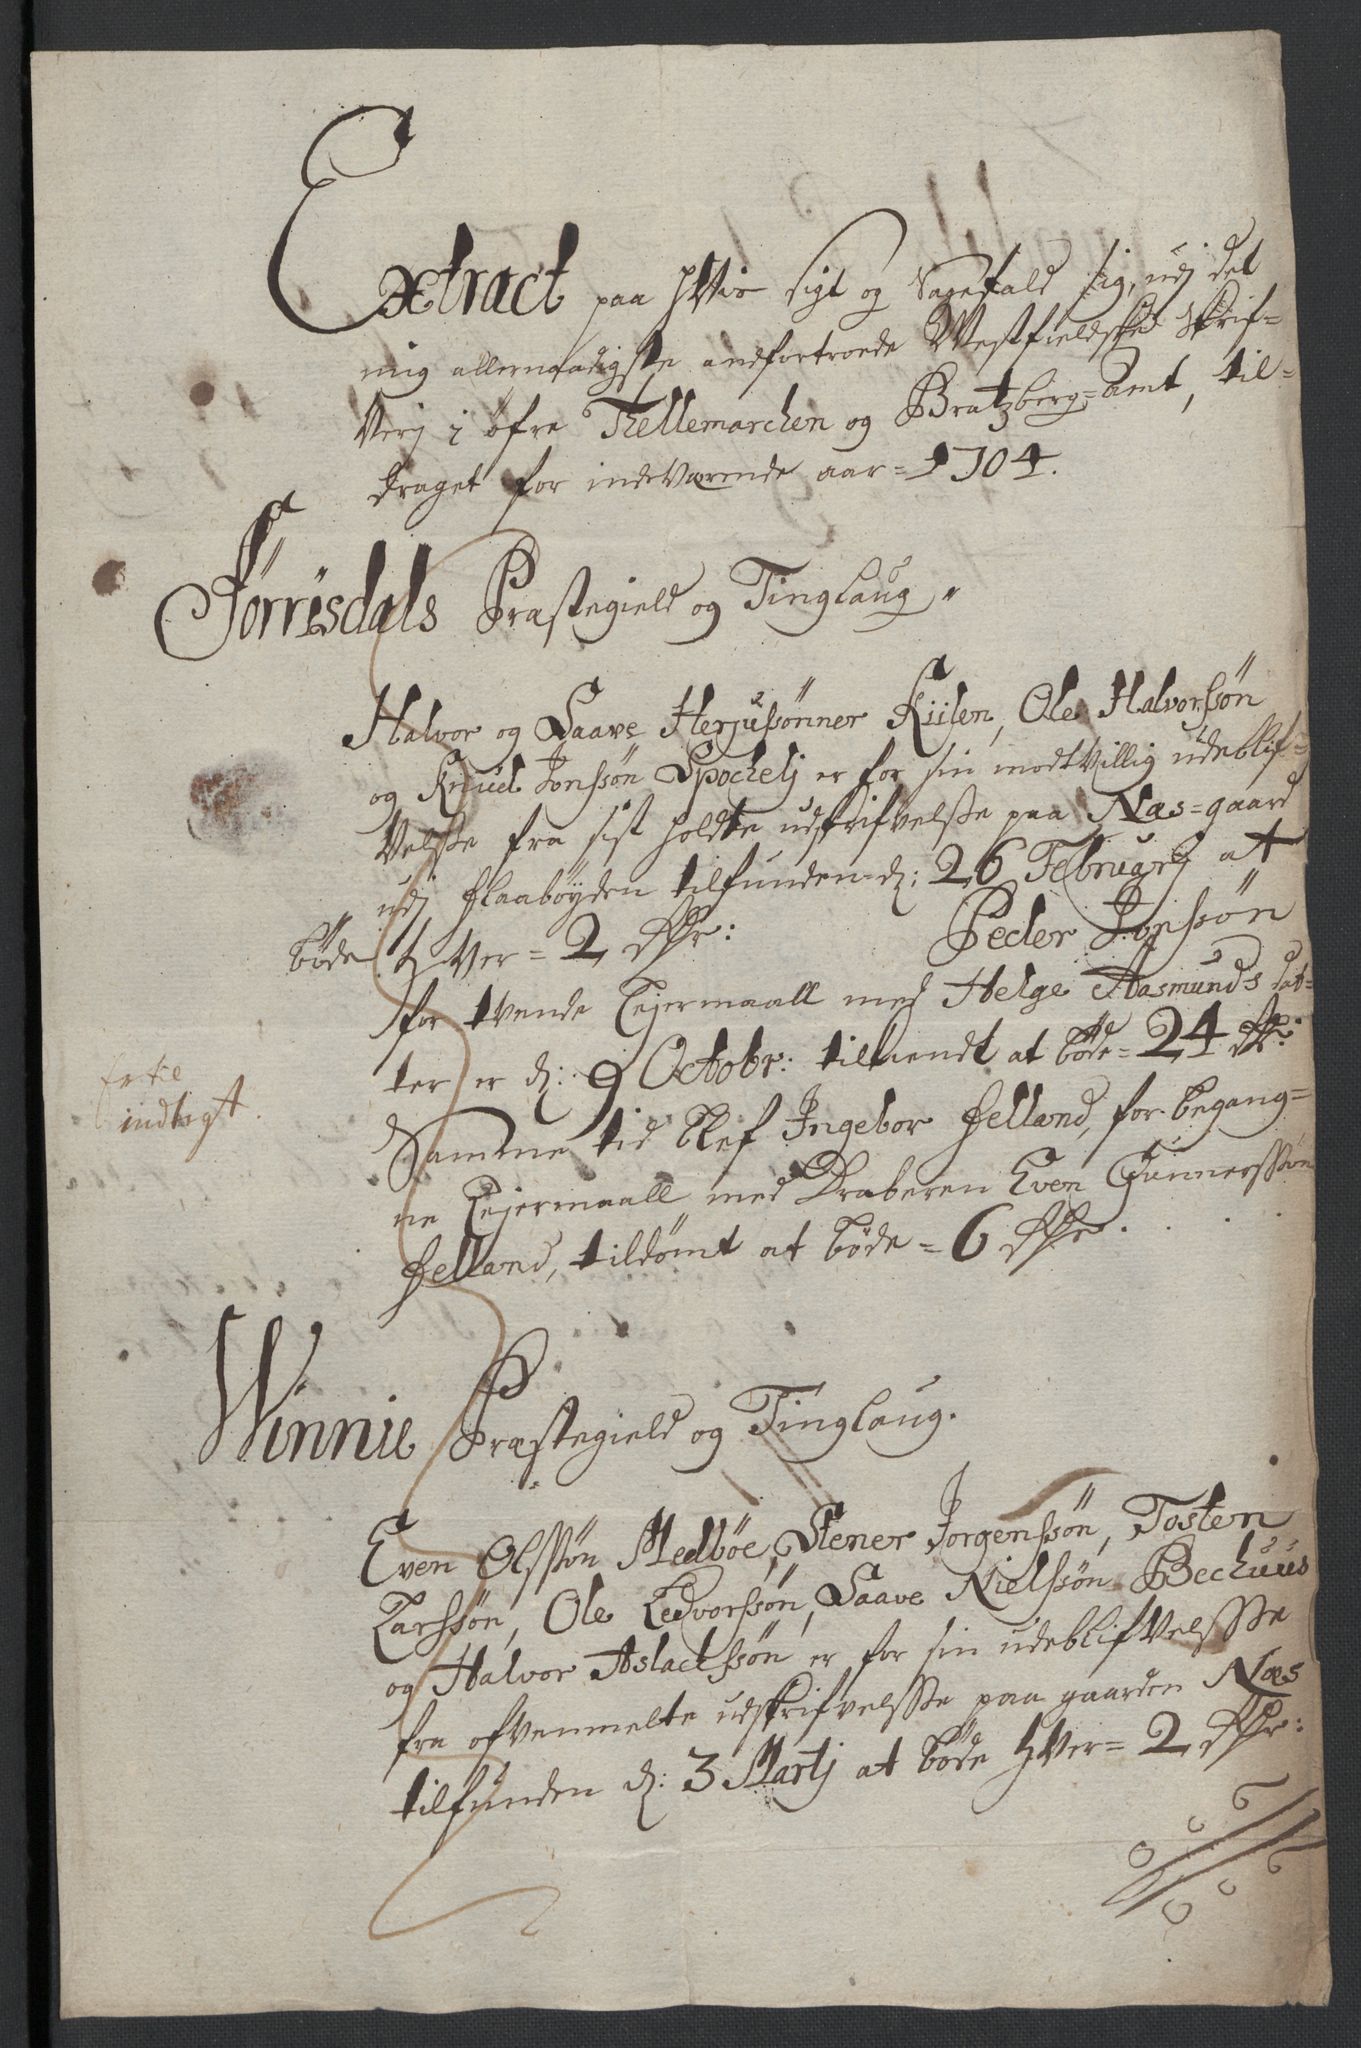 Extract paa hVis sigt og Sagefald sig, udj det
mig allernaadigste andfortroede Westfieldske Skrif=
Verj i öfre Tellemarchen og Bratzberg=amt, til=
draget for indeVærende aar = 1704.
Törrisdals Præstegield og Tinglaug
Halvor og Saave Herjussönner Kiilen, Ole Halvorssön
og Knud Jonssön Spochelj er for sin modtvillig udeblif=
Velsse fra sist holdte udskrifvelsse paa Næs=gaard
udj flaabøyden tilfunden d: 26 Februarj at
böde hVer = 2 Rdr: Peder Jonssön
for tVende Lejermaall med Helge Aasmunds dat=
ter er d: 9 Octobr: tilkiendt at böde = 24 Rdr:
Samme tid blef Ingebor felland, for begang=
ne Lejermaall med Draberen Even Gunnerssøn
felland, tildömt at böde = 6 Rdr.
fache
indtegt.
Winnie Præstegield og Tinglaug.
Even Olssön Medböe, Stener Jørgenssön, Tosten
Larssön, Ole Ledvorssön, Saave Nielssön Bechuus
og Halvor Aslachssön er for sin udeblifVelsse
fra ofvenmelte udskrifvelsse paa gaarden Næs
tilfunden d: 3 Martj at böde hVer = 2 Rdr: